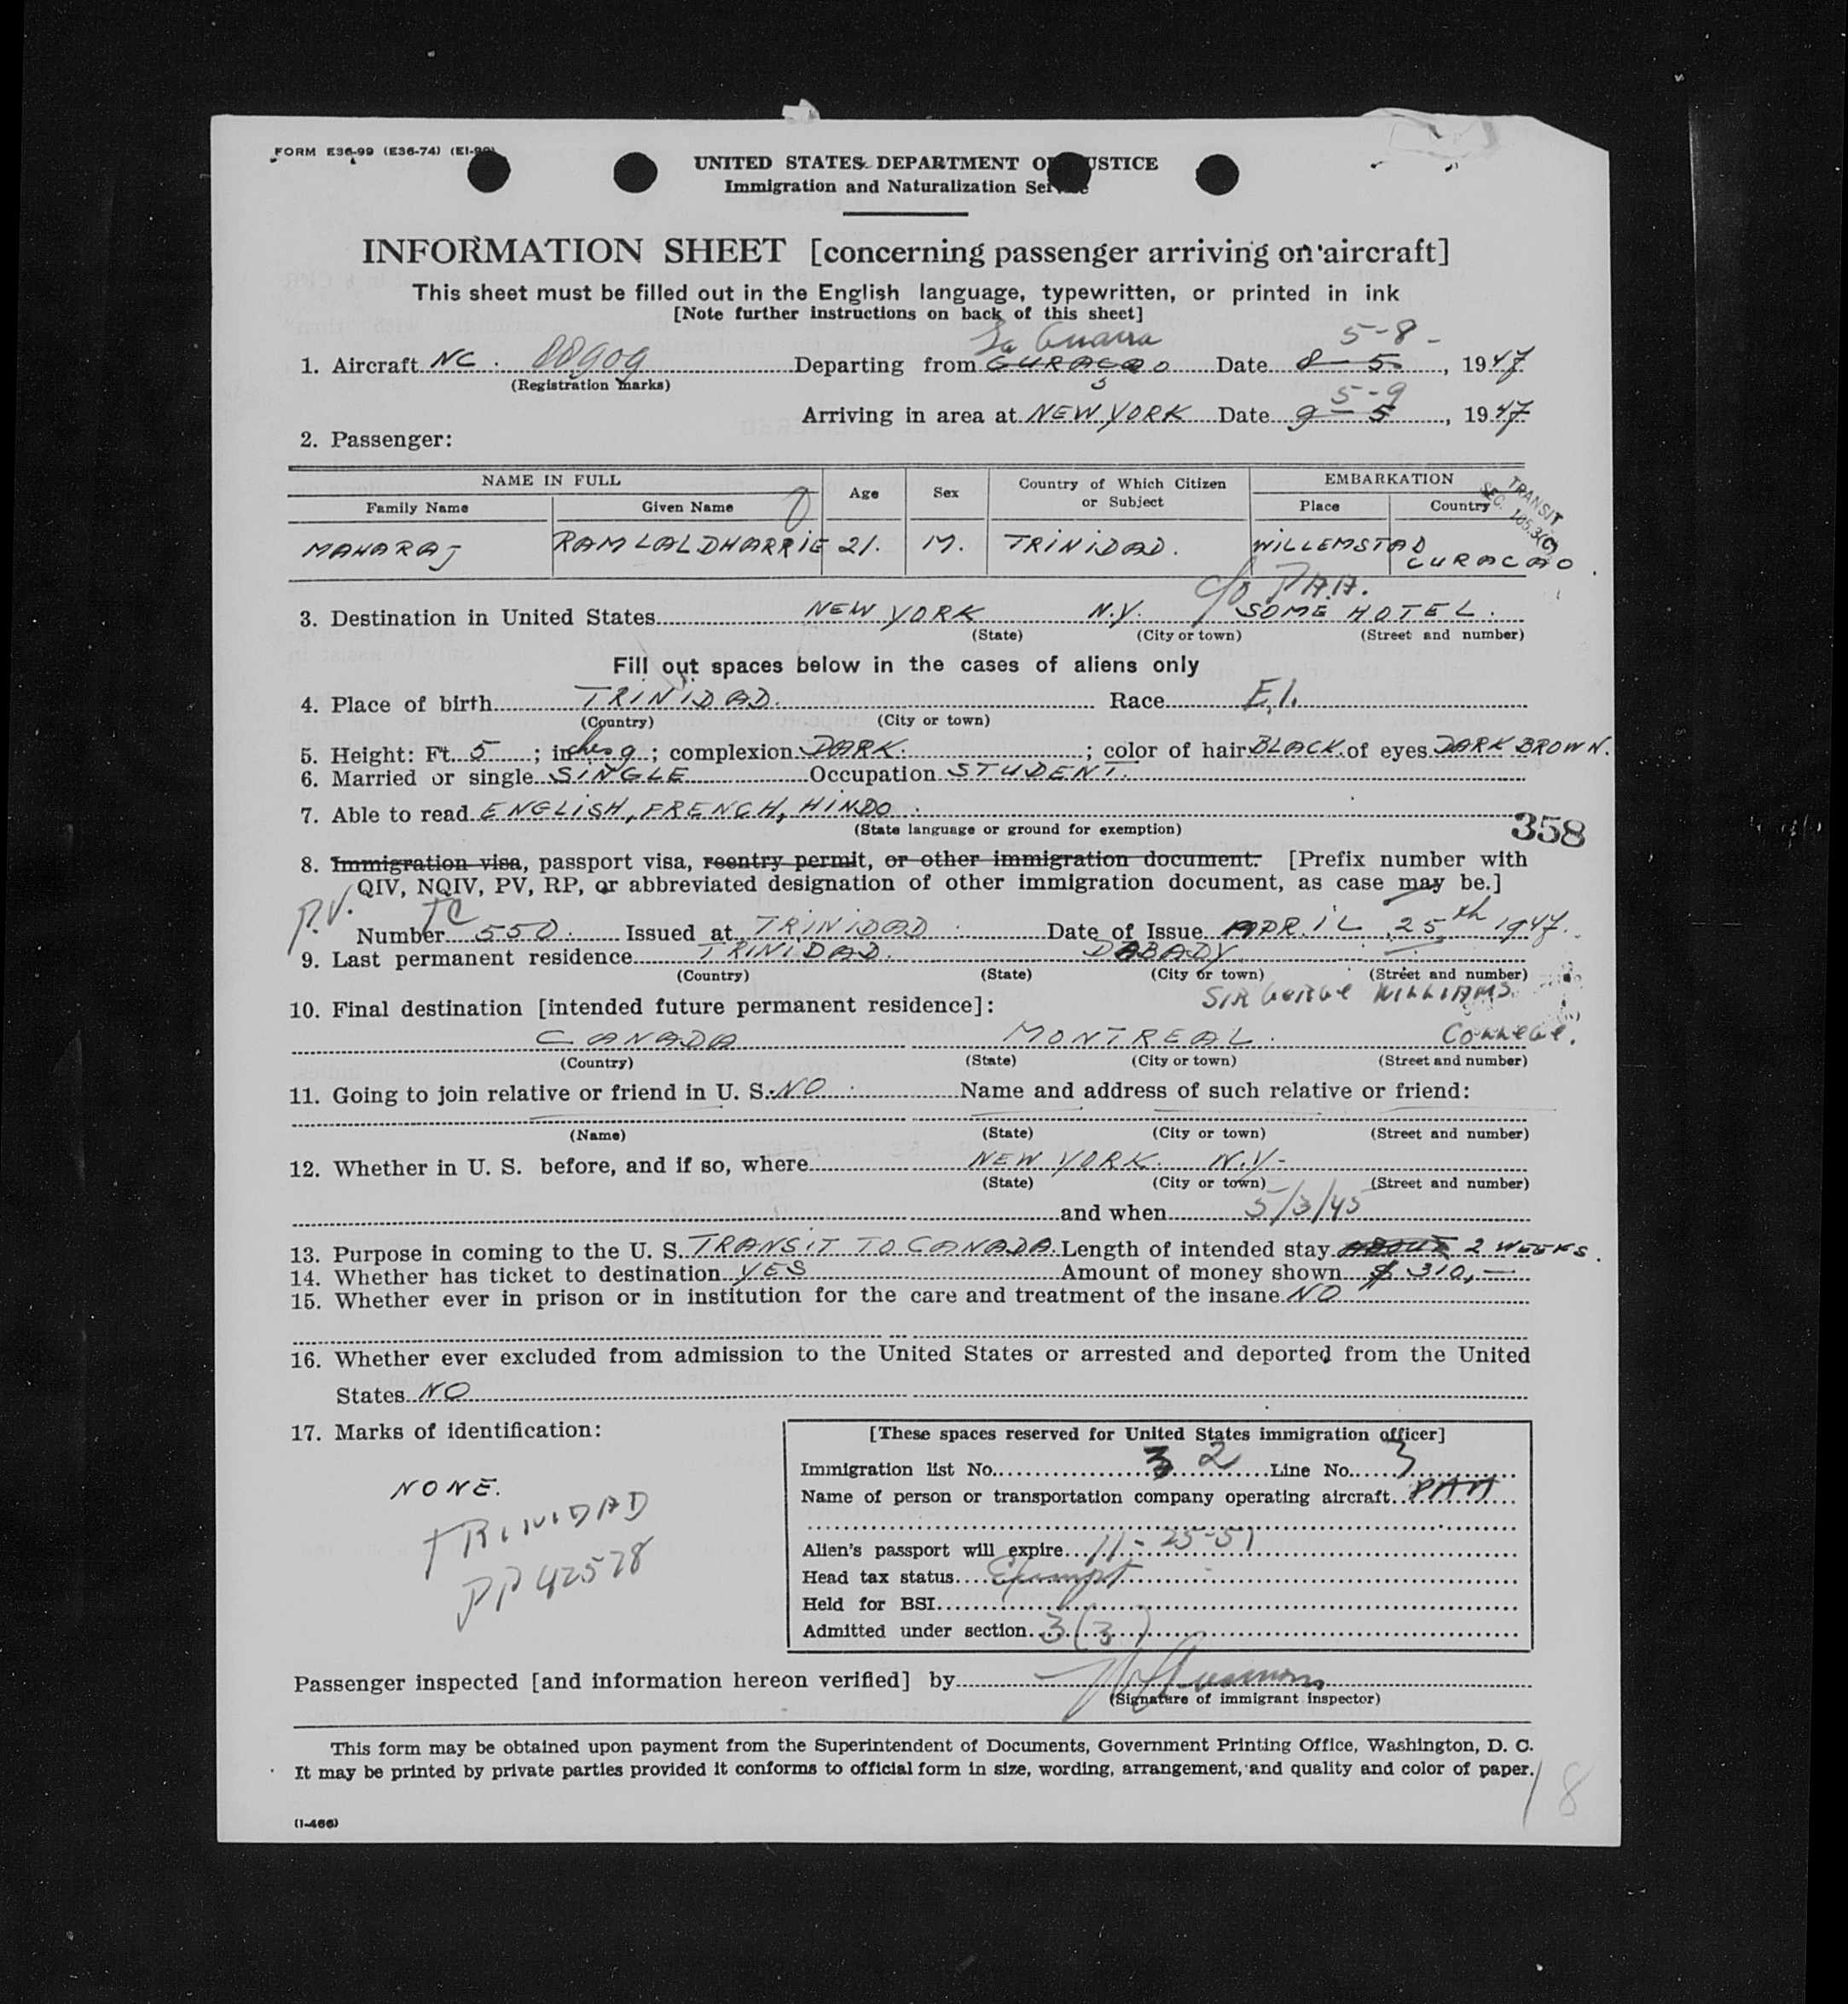 FORM E36-99 (E36-74) (EI-99)
UNITED STATES DEPARTMENT OF JUSTICE
Immigration and Naturalization Service
INFORMATION SHEET [concerning passenger arriving on aircraft]
This sheet must be filled out in the English language, typewritten, or printed in ink
[Note further instructions on back of this sheet]
La Guaira 5-8-
1. Aircraft NC. 88909 Departing from CURACAO Date 8-5, 1947
(Registration marks)
5-9
Arriving in area at NEW YORK Date 9-5, 1947
2. Passenger:
NAME IN FULL Age Sex Country of Which Citizen or Subject EMBARKATION
Family Name Given Name Place Country
TRANSIT
SEC. 105.3(C)
MAHARAJ RAMLALDHARRIE 21. M. TRINIDAD. WILLEMSTAD CURACAO.
c/o P.A.A.
3. Destination in United States NEW YORK N.Y. SOME HOTEL.
(State) (City or town) (Street and number)
Fill out spaces below in the cases of aliens only
4. Place of birth TRINIDAD. Race E.I.
(Country) (City or town)
5. Height: Ft. 5; inches 9; complexion DARK.; color of hair BLACK. of eyes DARK BROWN.
6. Married or single SINGLE Occupation STUDENT.
7. Able to read ENGLISH, FRENCH, HINDO.
(State language or ground for exemption)
358
8. Immigration visa, passport visa, reentry permit, or other immigration document. [Prefix number with
QIV, NQIV, PV, RP, or abbreviated designation of other immigration document, as case may be.]
P.V. TC
Number 550. Issued at TRINIDAD. Date of Issue APRIL 25th 1947.
9. Last permanent residence TRINIDAD. DABADY
(Country) (State) (City or town) (Street and number)
10. Final destination [intended future permanent residence]: SIR GEORGE WILLIAMS
CANADA MONTREAL. COLLEGE.
(Country) (State) (City or town) (Street and number)
11. Going to join relative or friend in U. S. NO. Name and address of such relative or friend:
(Name) (State) (City or town) (Street and number)
12. Whether in U. S. before, and if so, where NEW YORK. N.Y-
(State) (City or town) (Street and number)
and when 5/3/45
13. Purpose in coming to the U. S. TRANSIT TO CANADA. Length of intended stay ABOUT 2 WEEKS.
14. Whether has ticket to destination YES Amount of money shown $ 310,—
15. Whether ever in prison or in institution for the care and treatment of the insane NO
16. Whether ever excluded from admission to the United States or arrested and deported from the United
States NO
17. Marks of identification:
NONE.
TRINIDAD
PP 42578
[These spaces reserved for United States immigration officer]
Immigration list No. 3 2 Line No. 3
Name of person or transportation company operating aircraft PAA
Alien's passport will expire 11-25-51
Head tax status Exempt
Held for BSI
Admitted under section 3(3)
Passenger inspected [and information hereon verified] by
(Signature of immigrant inspector)
This form may be obtained upon payment from the Superintendent of Documents, Government Printing Office, Washington, D. C.
It may be printed by private parties provided it conforms to official form in size, wording, arrangement, and quality and color of paper.
18
(I-466)